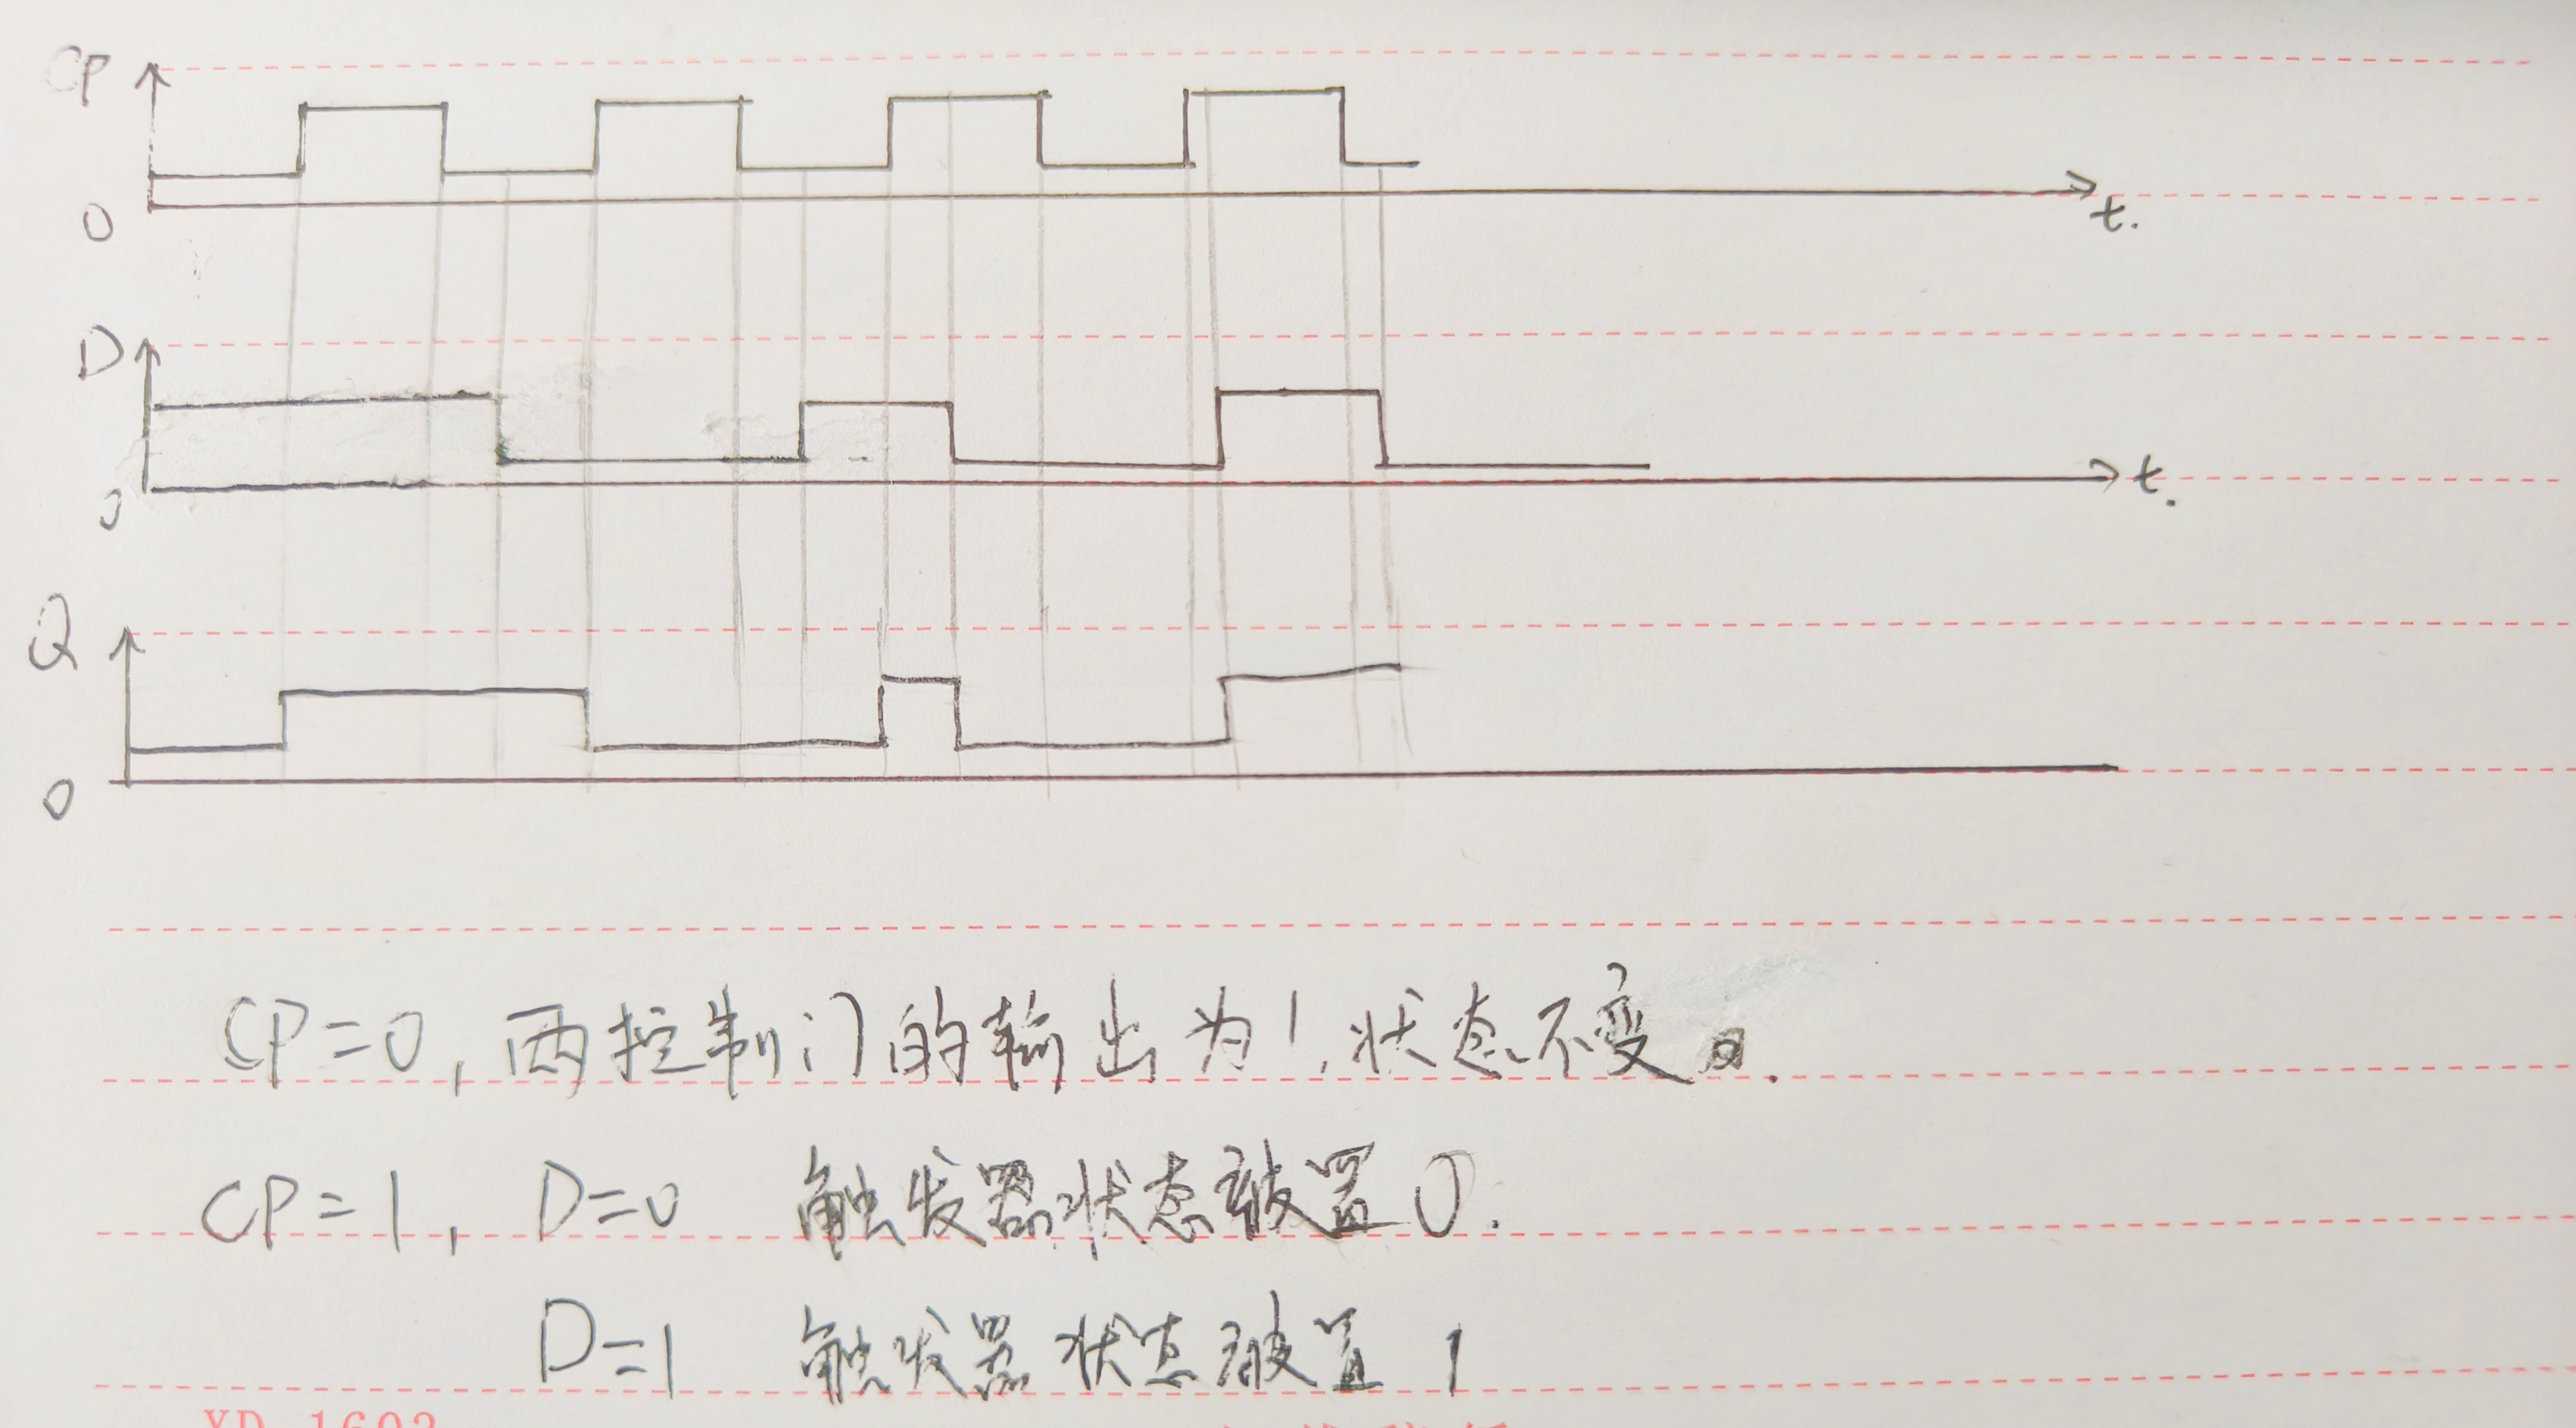 CP
0
t.
D
0
t.
Q
0
CP=0, 两控制门的输出为1, 状态不变。
CP=1, D=0 触发器状态被置0.
D=1 触发器状态被置 1